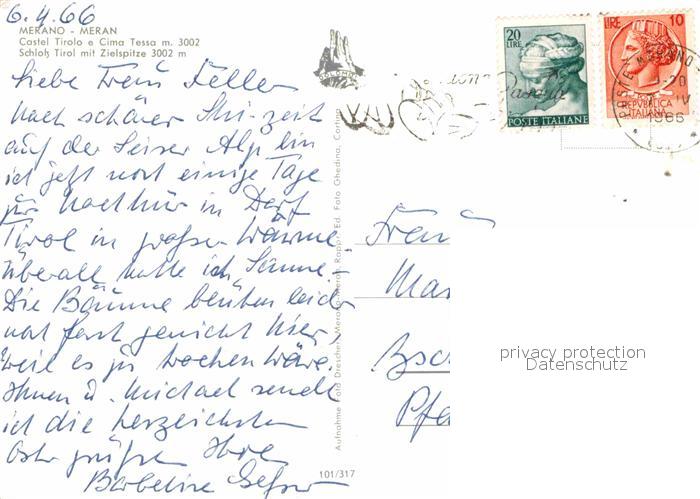 6.4.66
MERANO - MERAN
Castel Tirolo e Cima Tessa m. 3002
Schloß Tirol mit Zielspitze 3002 m
Liebe Frau Feller
nach schöner Ski-zeit
auf der Seiser Alp bin
ich jetzt noch einige Tage
zur Nachkur in Dorf
Tirol in großer Wärme,
überall hatte ich Sonne.-
Die Bäume blühen leider
noch fast garnicht hier,
weil es zu trocken wäre.
Ihnen u. Michael sende
ich die herzlichsten
Ostergrüße Ihre
101/317
Aufnahme Foto Dresch Ed. Foto Ghedina
20
LIRE
POSTE ITALIANE
LIRE 10
REPVBBLICA
ITALIANA
1966
Buona
Pasqua
Frau
privacy protection
Datenschutz